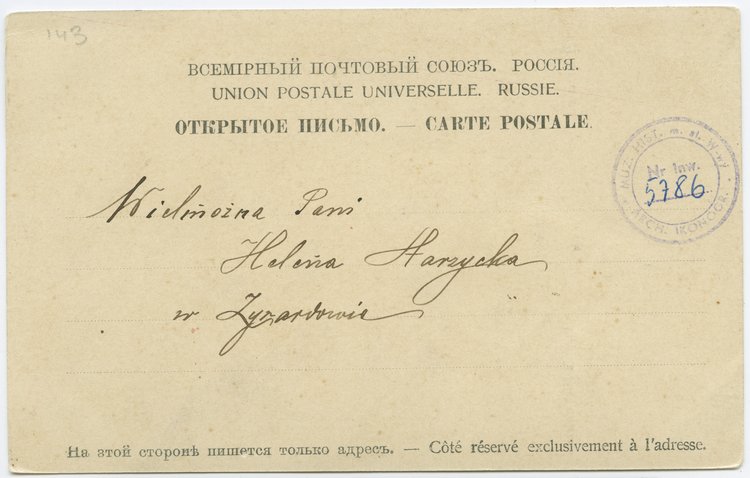 143
ВСЕМІРНЫЙ ПОЧТОВЫЙ СОЮЗЪ. РОССІЯ.
UNION POSTALE UNIVERSELLE. RUSSIE.
ОТКРЫТОЕ ПИСЬМО. — CARTE POSTALE.
MUZ. HIST. m. st. W-wy
Nr inw.
5786
ARCH. IKONOGR.
Wielmożna Pani
Helena Narzycka
w Żyrardowie
На этой сторонѣ пишется только адресъ. — Côté réservé exclusivement à l'adresse.